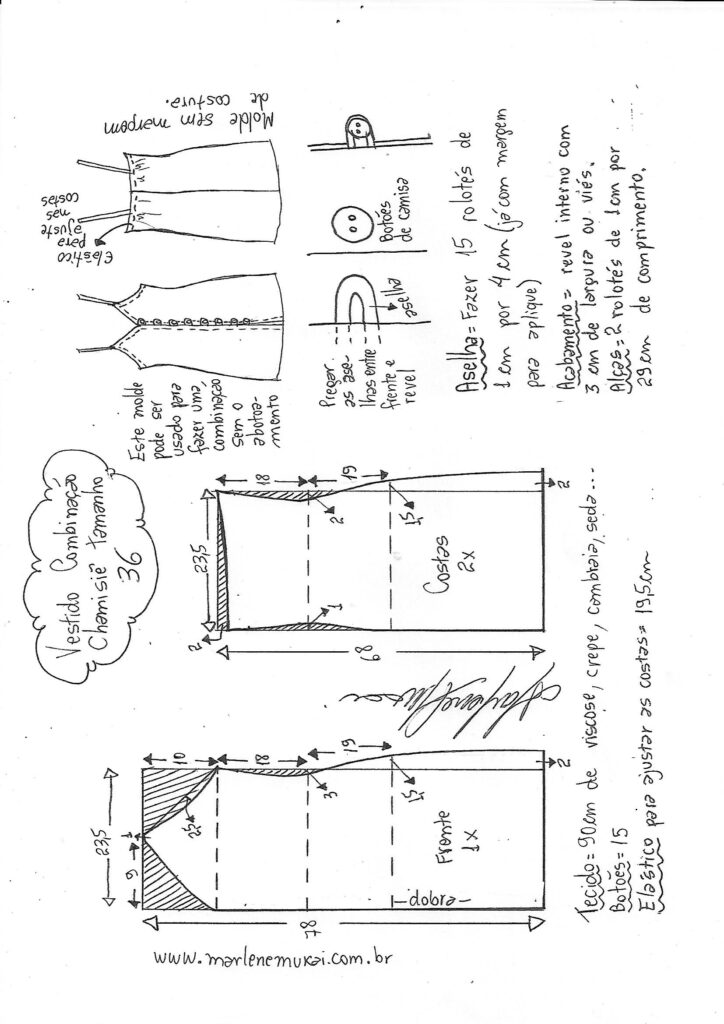 Vestido Combinação
Chamisiê tamanho
36
Este molde
pode ser
usado para
fazer uma
combinação
sem o
abotoa-
mento
Elástico
para
ajuste
nas
costas
Molde sem margem
de costura.
Pregar
as ase-
lhas entre
frente e
revel
aselha
Botões
de camisa
Aselha = Fazer 15 rolotés de
1 cm por 4 cm (já com margem
para aplique)
Acabamento = revel interno com
3 cm de largura ou viés.
Alças = 2 rolotés de 1 cm por
29 cm de comprimento.
23,5
9
1
10
2,5
18
3
19
1,5
2
78
Frente
1x
dobra
23,5
2
18
2
19
1,5
1
2
68
Costas
2x
www.marlenemukai.com.br
Tecido = 90 cm de viscose, crepe, cambraia, seda...
Botões = 15
Elástico para ajustar as costas = 19,5 cm